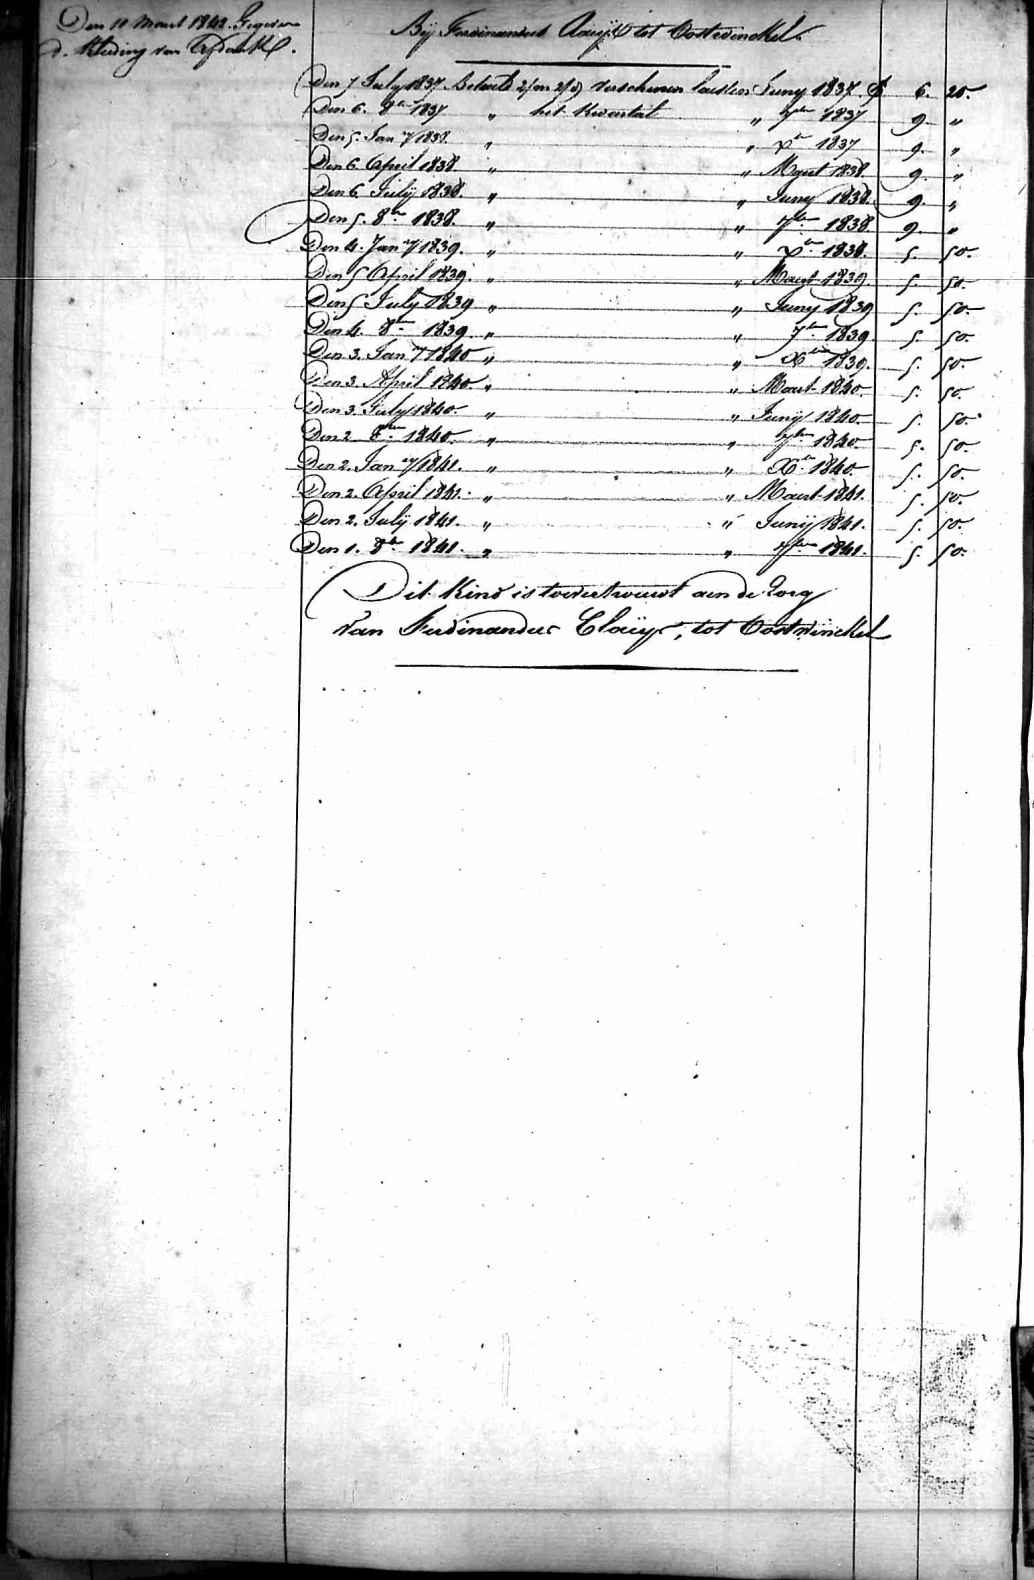 Den 10 Maert 1842. Gegeven
d. Kleding van Afdank.
Bij Ferdinandus Claijs tot Oostwinckel
Den 7 July 1837. Betaelt 2/m verschenen laesten Juny 1837. 6. 20.
Den 6. 8re 1837 " het Kwartal " 7bre 1837 9. "
Den 5. Jan ry 1838. " " Xre 1837 9. "
Den 6. April 1838. " " Maert 1838. 9. "
Den 6. July 1838. " " Juny 1838. 9. "
Den 5. 8re 1838. " " 7bre 1838. 9. "
Den 4. Jan ry 1839. " " Xre 1838. 5. 50.
Den 5 April 1839. " " Maert 1839. 5. 50.
Den 5 July 1839 " " Juny 1839 5. 50.
Den 4. 8re 1839. " " 7bre 1839 5. 50.
Den 3. Jan ry 1840 " " Xbre 1839. 5. 50.
Den 3. April 1840. " " Maert 1840. 5. 50.
Den 3. July 1840. " " Juny 1840. 5. 50.
Den 2 8bre 1840. " " 7bre 1840. 5. 50.
Den 2. Jan ry 1841. " " Xre 1840. 5. 50.
Den 2. April 1841. " " Maert 1841. 5. 50.
Den 2. July 1841. " " Juny 1841. 5. 50.
Den 1. 8bre 1841. " " 7bre 1841. 5. 50.
Dit Kind is toevertrouwt aen de Zorg
van Ferdinandus Claijs, tot Oostwinckel